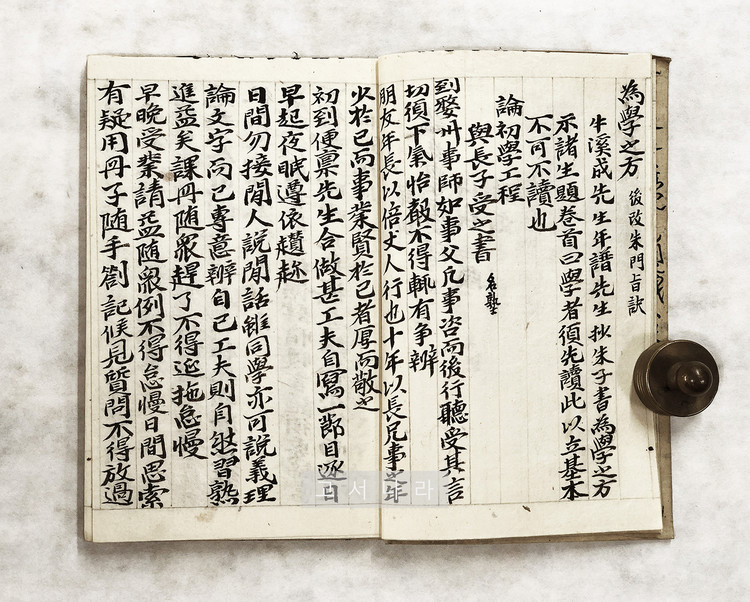 為學之方 後改朱門旨訣
牛溪成先生年譜先生抄朱子書為學之方
示諸生題卷首曰學者須先讀此以立基本
不可不讀也
論初學工程
與長子受之書 名塾
到婺州事師如事父凡事咨而後行聽受其言
切須下氣怡聲不得輒有争辨
朋友年長以倍丈人行也十年以長兄事之年
少於己而事業賢於己者厚而敬之
初到便禀先生合做甚工夫自寫一節目逐日
早起夜眠遵依趲趂
日間勿接閒人說閒話雖同學亦可說義理
論文字而已專意辦自己工夫則自然習熟
進益矣課冊随衆趕了不得遲拖怠慢
早晚受業請益随衆例不得怠慢日間思索
有疑用冊子随手劄記候見質問不得放過
고서
라